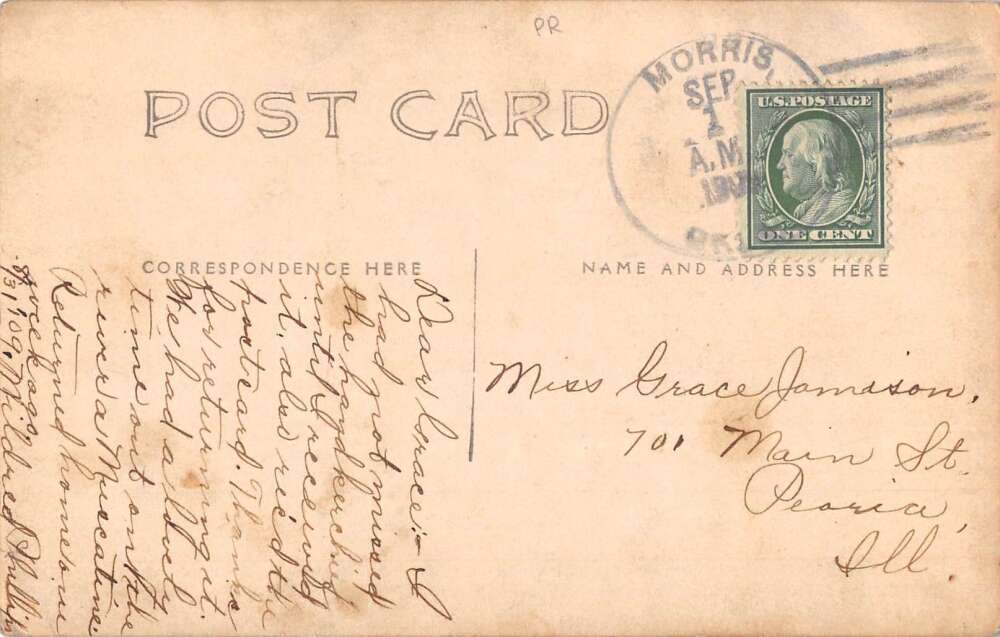 PR
POST CARD
MORRIS,
SEP
1
A.M.
190
OKLA
U.S. POSTAGE
ONE CENT
CORRESPONDENCE HERE
NAME AND ADDRESS HERE
Dear Grace:- I
had not missed
the handkerchief
until I received
it, also rec'd the
postcard. Thanks
for returning it.
We had a lovely
time out on the
river at Muscatine.
Returned home on
a week ago.
8/31/09. Mildred Phillips
Miss Grace Jamason,
701 Main St.
Peoria,
Ill.